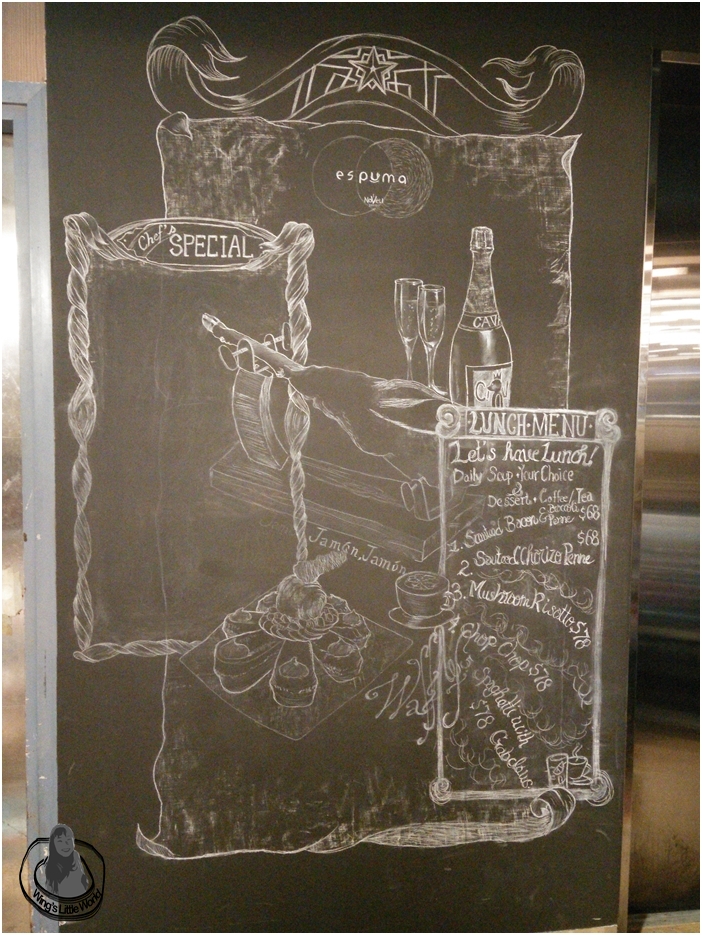 espuma
Chef's SPECIAL
CAVA
LUNCH·MENU·
Let's have Lunch!
Daily Soup + Your Choice
Dessert + Coffee/Tea
1. Sauteed Bacon & Broccoli Penne $68
$68
2. Sauteed Chorizo Penne
3. Mushroom Risotto $78
Chop Chop $78
Spaghetti with
$78
Jamón, Jamón
Wing's Little World